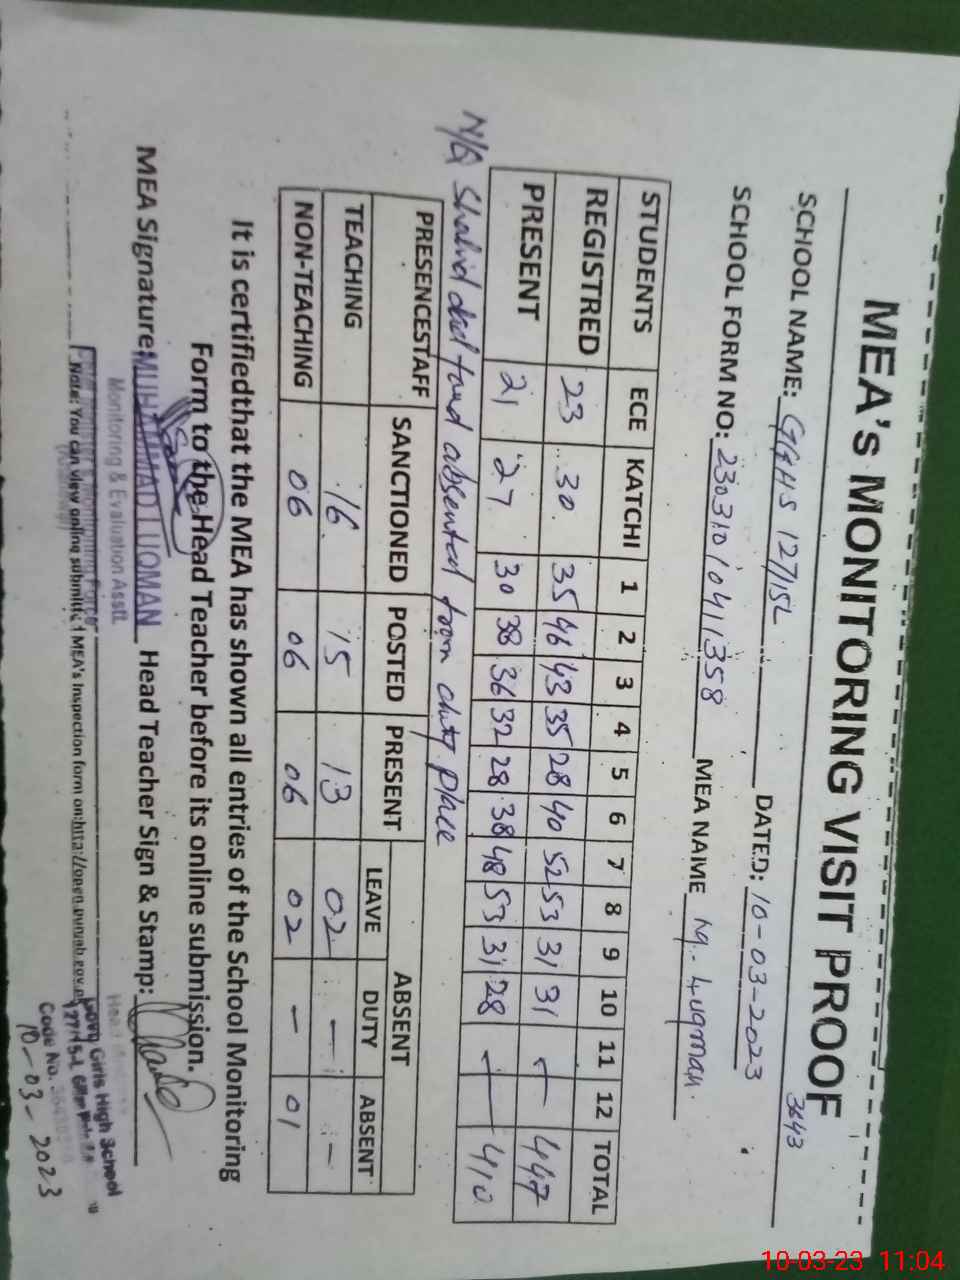 MEA's MONITORING VISIT PROOF
3643
SCHOOL NAME: GGHS 127/15L DATED: 10-03-2023
SCHOOL FORM NO: 230310/0411358 MEA NAME M. Luqman
STUDENTS ECE KATCHI 1 2 3 4 5 6 7 8 9 10 11 12 TOTAL
REGISTRED 23 30 35 46 43 35 28 40 52 53 31 31 447
PRESENT 21 27 30 38 36 32 28 38 48 53 31 28 410
N/Q Shahid absented from duty place
PRESENCESTAFF SANCTIONED POSTED PRESENT ABSENT
LEAVE DUTY ABSENT
TEACHING 16 15 13 02 - -
NON-TEACHING 06 06 06 02 - 01
It is certifiedthat the MEA has shown all entries of the School Monitoring
Form to the Head Teacher before its online submission.
MEA Signature: MUHAMMAD LUQMAN Head Teacher Sign & Stamp:
Monitoring & Evaluation Asstt.
Note: You can view online submitted MEA's Inspection form on:http://open.punjab.gov.pk
Govt Girls High School
127/15-L
Code No.
10-03-2023
10-03-23 11:04